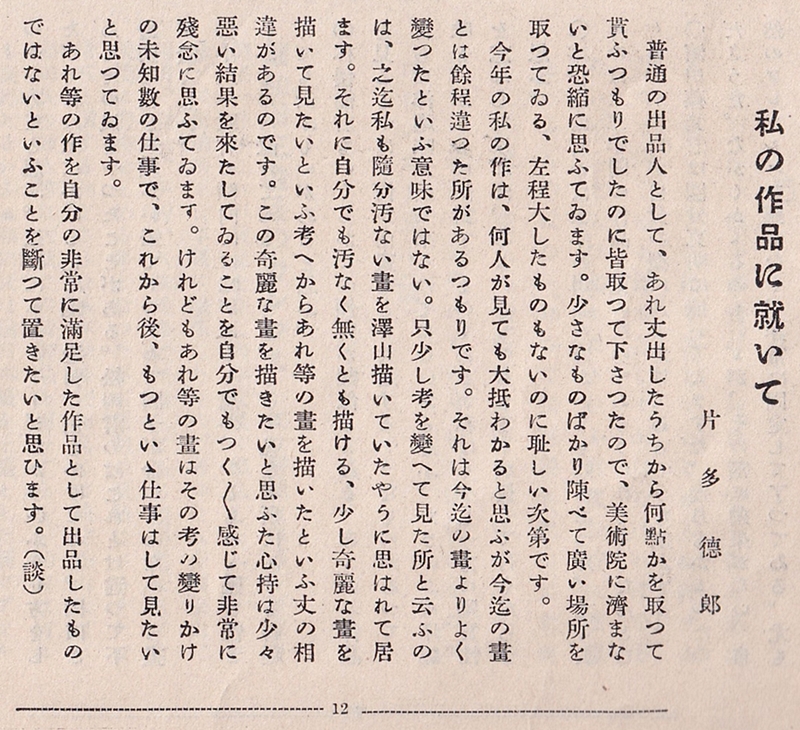 私の作品に就いて
片多德郎
普通の出品人として、あれ丈出したうちから何點かを取つて
貰ふつもりでしたのに皆取つて下さつたので、美術院に濟まな
いと恐縮に思ふてゐます。少さなものばかり陳べて廣い場所を
取つてゐる、左程大したものもないのに耻しい次第です。
今年の私の作は、何人が見ても大抵わかると思ふが今迄の畫
とは餘程違つた所があるつもりです。それは今迄の畫よりよく
變つたといふ意味ではない。只少し考を變へて見た所と云ふの
は、之迄私も隨分汚ない畫を澤山描いていたやうに思はれて居
ます。それに自分でも汚なく無くとも描ける、少し奇麗な畫を
描いて見たいといふ考へからあれ等の畫を描いたといふ丈の相
違があるのです。この奇麗な畫を描きたいと思ふた心持は少々
惡い結果を來たしてゐることを自分でもつく〲感じて非常に
殘念に思ふてゐます。けれどもあれ等の畫はその考の變りかけ
の未知數の仕事で、これから後、もつといゝ仕事はして見たい
と思つてゐます。
あれ等の作を自分の非常に滿足した作品として出品したもの
ではないといふことを斷つて置きたいと思ひます。（談）
12